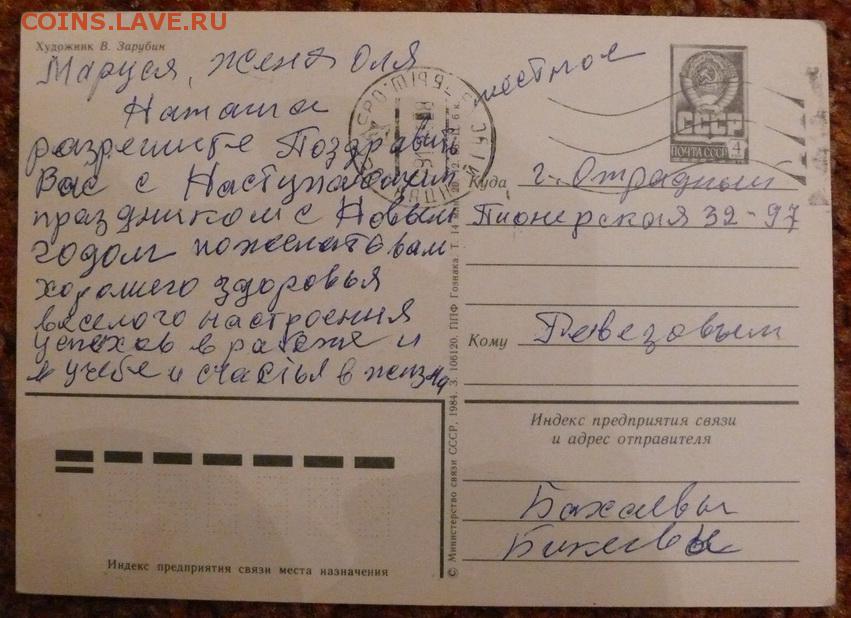 COINS.LAVE.RU
Художник В. Зарубин
Маруся, Женя Оля
Наташа
разрешите Поздравить
Вас с Наступающим
праздником с Новым
годом пожелать вам
хорошего здоровья
веселого настроения
успехов в работе и
в учебе и счастья в жизни
местное
СССР
ПОЧТА СССР 4
Куда г. Отрадный
Пионерская 39-97
Кому
Индекс предприятия связи
и адрес отправителя
Бахаевы
Индекс предприятия связи места назначения
© Министерство связи СССР, 1984. З. 106120. ППФ Гознака. Т. 14